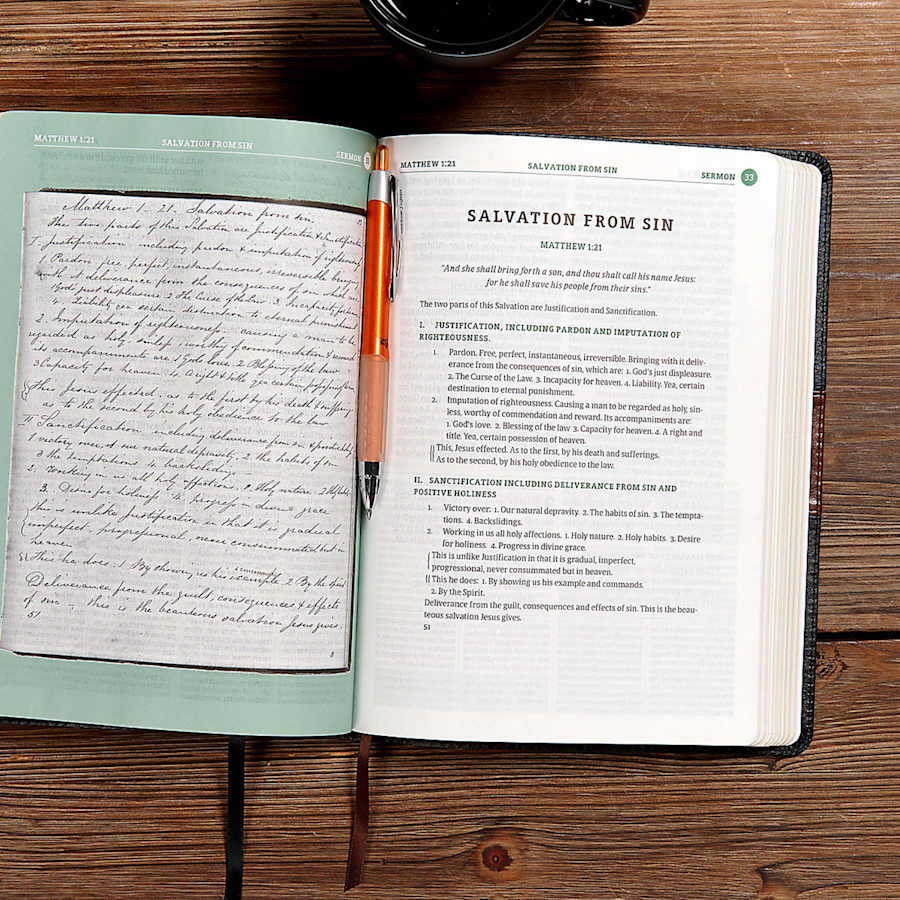 MATTHEW 1:21 SALVATION FROM SIN SERMON
Matthew 1 - 21 - Salvation from sin.
The two parts of this Salvation are Justification & Sanctification
I. Justification including pardon & imputation of righteousness
1. Pardon free, perfect, instantaneous, irreversible bringing
with it deliverance from the consequences of sin which are
God's just displeasure 2 The Curse of the Law. 3. Incapacity for heaven
4. Liability yea certain destruction to eternal punishment
2. Imputation of righteousness causing a man to be
regarded as holy, sinless, worthy of commendation & reward
its accompaniments are 1 God's love. 2 Blessing of the law
3 Capacity for heaven. 4 A right & title yea certain possession
This Jesus effected. as to the first by his death & sufferings
as to the second by his holy obedience to the law
II. Sanctification including deliverance from sin & positive holiness
1 victory over, 1 our natural depravity. 2 the habits of sin.
3 the temptations 4 backslidings
2. Working in us all holy affections. 1. Holy nature. 2 Holy habits
3. Desire for holiness 4. progress in divine grace
this is unlike Justification in that it is gradual
imperfect, progressional, never consummated but in
heaven.
This he does. 1 By showing us his example & commands 2 By the Spirit
Deliverance from the guilt, consequences & effects
of sin. this is the beauteous salvation Jesus gives.
51
MATTHEW 1:21 SALVATION FROM SIN SERMON 33
SALVATION FROM SIN
MATTHEW 1:21
"And she shall bring forth a son, and thou shalt call his name Jesus:
for he shall save his people from their sins."
The two parts of this Salvation are Justification and Sanctification.
I. JUSTIFICATION, INCLUDING PARDON AND IMPUTATION OF
RIGHTEOUSNESS.
1. Pardon. Free, perfect, instantaneous, irreversible. Bringing with it deliv-
erance from the consequences of sin, which are: 1. God's just displeasure.
2. The Curse of the Law. 3. Incapacity for heaven. 4. Liability. Yea, certain
destination to eternal punishment.
2. Imputation of righteousness. Causing a man to be regarded as holy, sin-
less, worthy of commendation and reward. Its accompaniments are:
1. God's love. 2. Blessing of the law 3. Capacity for heaven. 4. A right and
title. Yea, certain possession of heaven.
This, Jesus effected. As to the first, by his death and sufferings.
As to the second, by his holy obedience to the law.
II. SANCTIFICATION INCLUDING DELIVERANCE FROM SIN AND
POSITIVE HOLINESS
1. Victory over: 1. Our natural depravity. 2. The habits of sin. 3. The tempta-
tions. 4. Backslidings.
2. Working in us all holy affections. 1. Holy nature. 2. Holy habits. 3. Desire
for holiness. 4. Progress in divine grace.
This is unlike Justification in that it is gradual, imperfect,
progressional, never consummated but in heaven.
This he does: 1. By showing us his example and commands.
2. By the Spirit.
Deliverance from the guilt, consequences and effects of sin. This is the beau-
teous salvation Jesus gives.
51